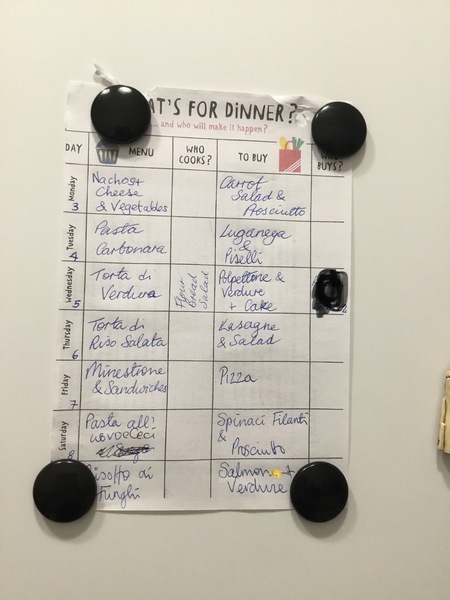 AT'S FOR DINNER?
... and who will make it happen?
DAY MENU WHO COOKS? TO BUY BUYS?
Monday 3
Nachos+
Cheese
& Vegetables
Carrot
Salad &
Prosciutto
Tuesday 4
Pasta
Carbonara
Luganega
&
Piselli
Wednesday 5
Torta di
Verdura
Flour
Bread
Salad
Polpettone &
Verdure
+ Cake
Thursday 6
Torta di
Riso Salata
Lasagne
& Salad
Friday 7
Minestrone
& Sandwiches
Pizza
Saturday 8
Pasta all'
uovo Ceci
Spinaci Filanti
&
Prosciutto
Risotto ai
Funghi
Salmon +
Verdure